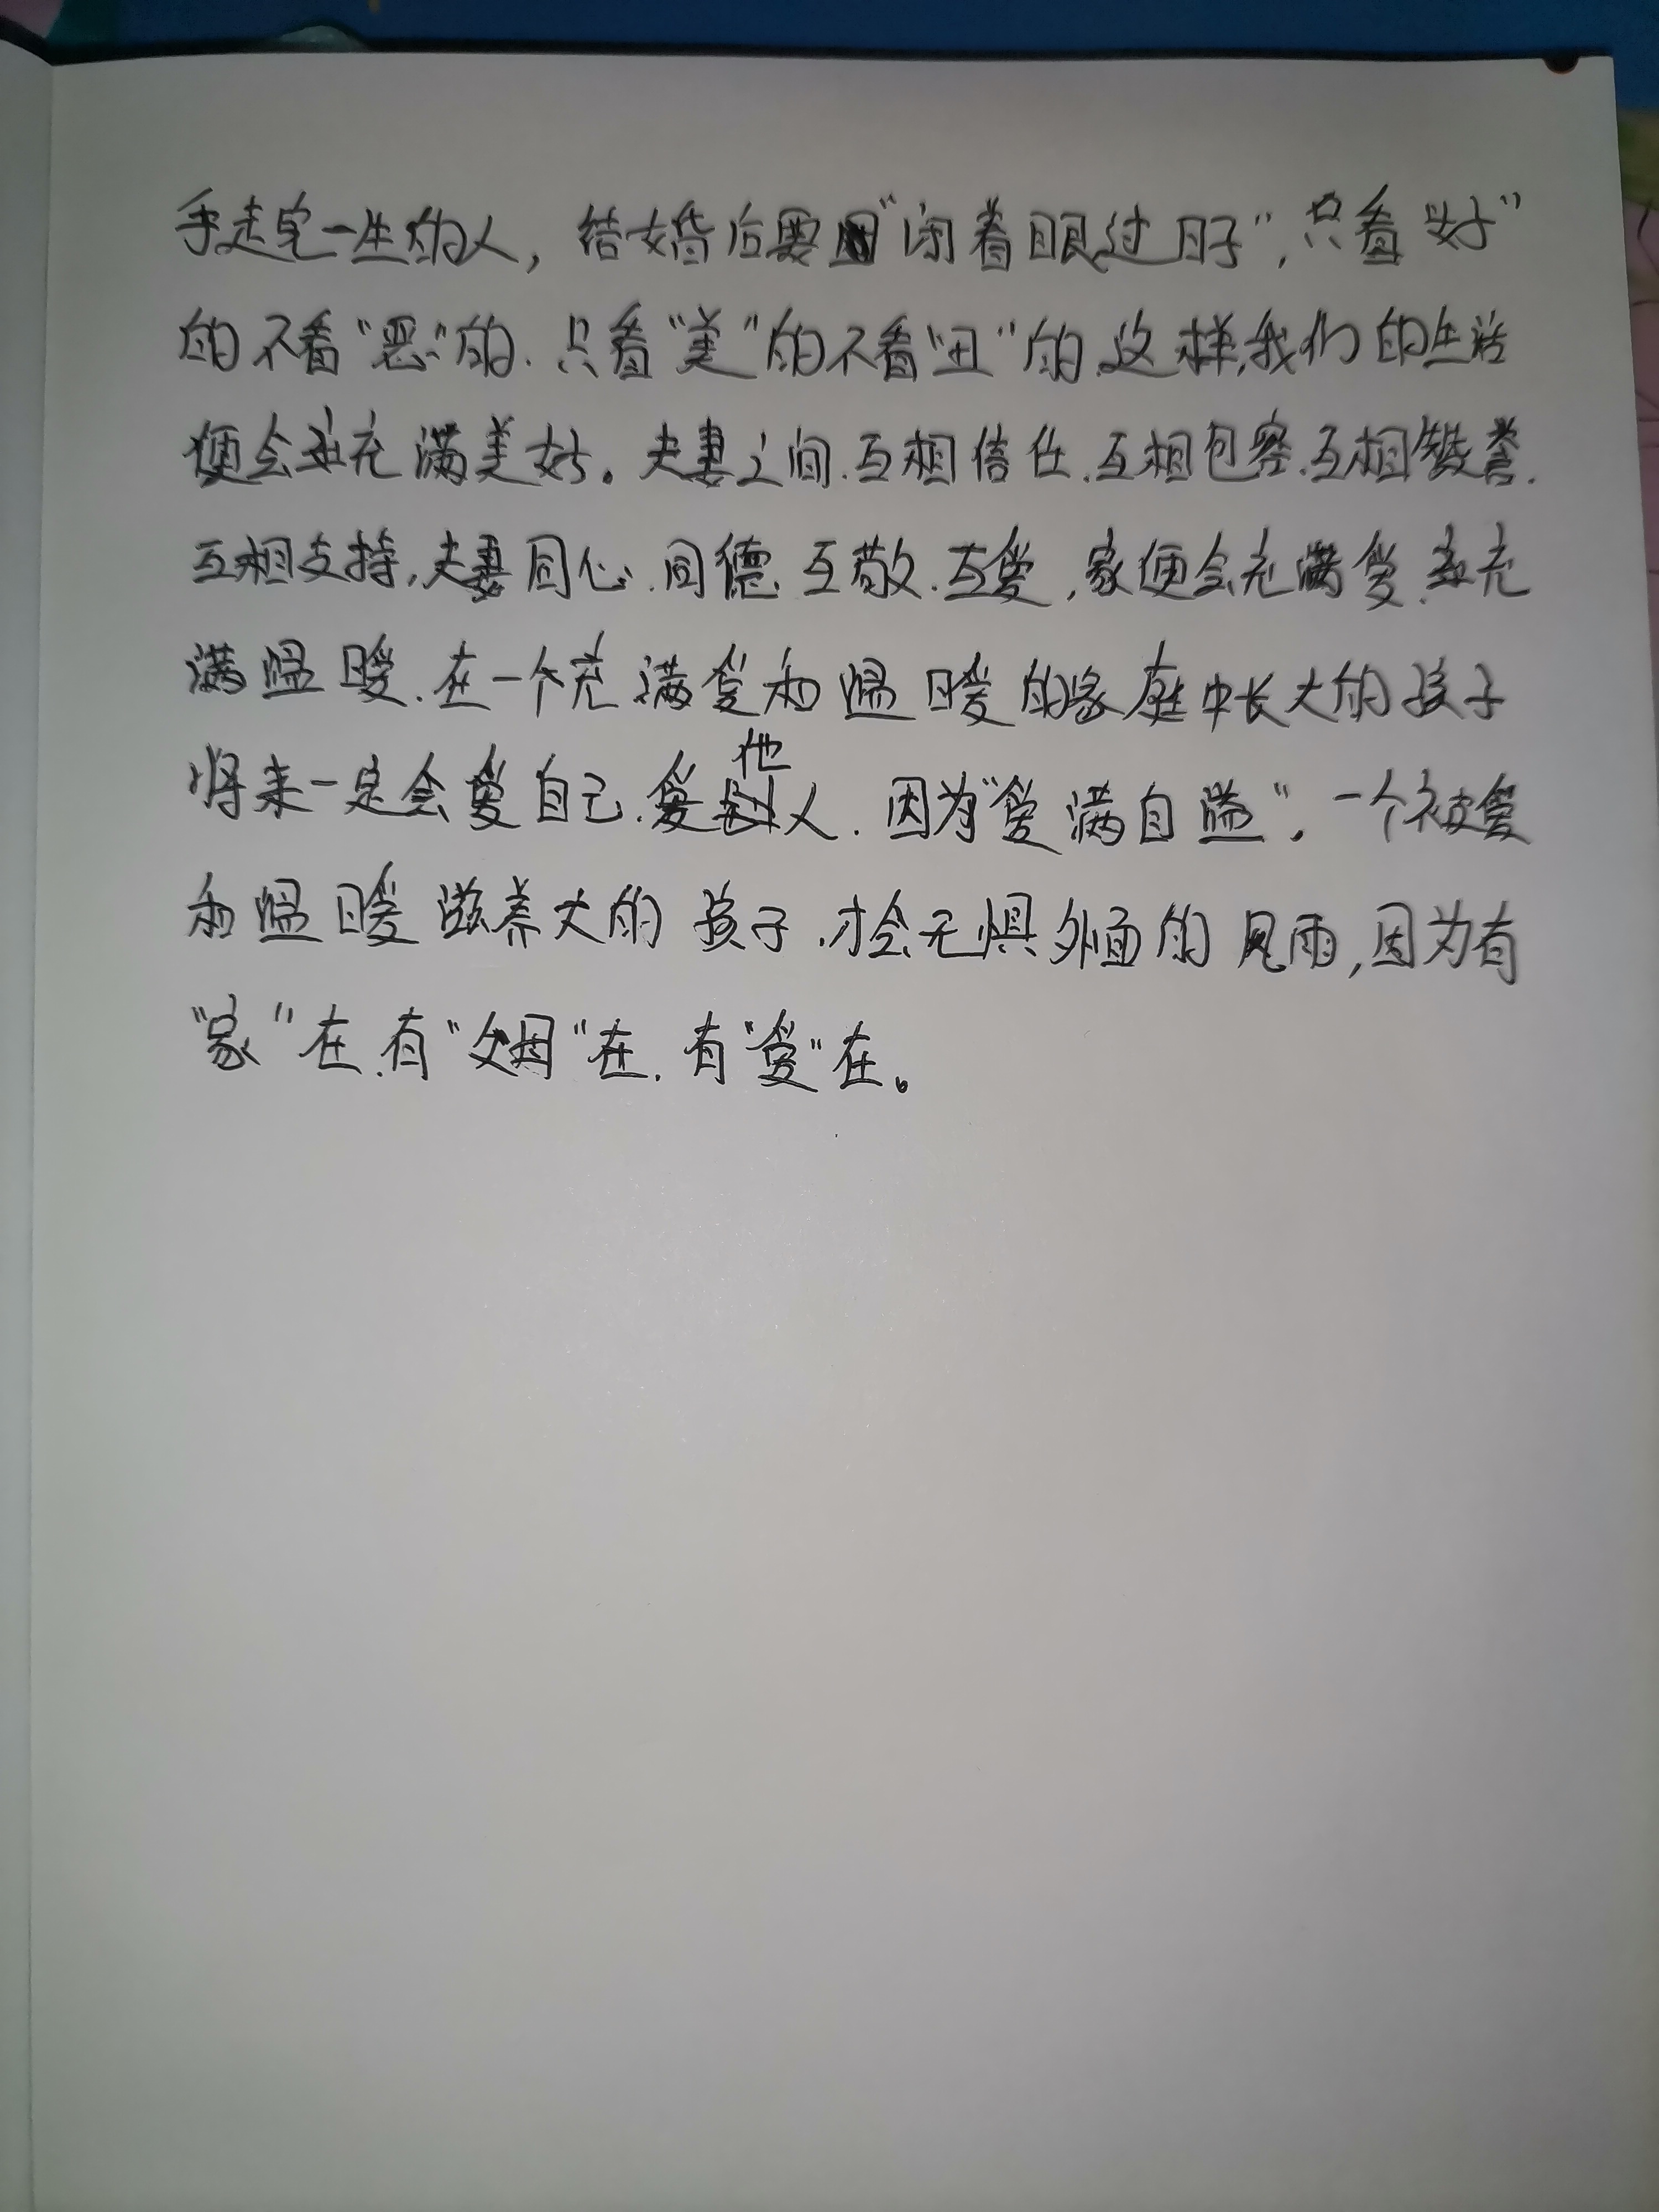 手走完一生的人，结婚后要"闭着眼过日子"，只看"好"
的不看"恶"的，只看"美"的不看"丑"的，这样，我们的生活
便会充满美好。夫妻之间，互相信任，互相包容，互相赞誉，
互相支持，夫妻同心，同德，互敬，互爱，家便会充满爱，充
满温暖，在一个充满爱和温暖的家庭中长大的孩子
将来一定会爱自己，爱他人，因为"爱满自溢"，一个被爱
和温暖滋养大的孩子，才会无惧外面的风雨，因为有
"家"在，有"父母"在，有"爱"在。